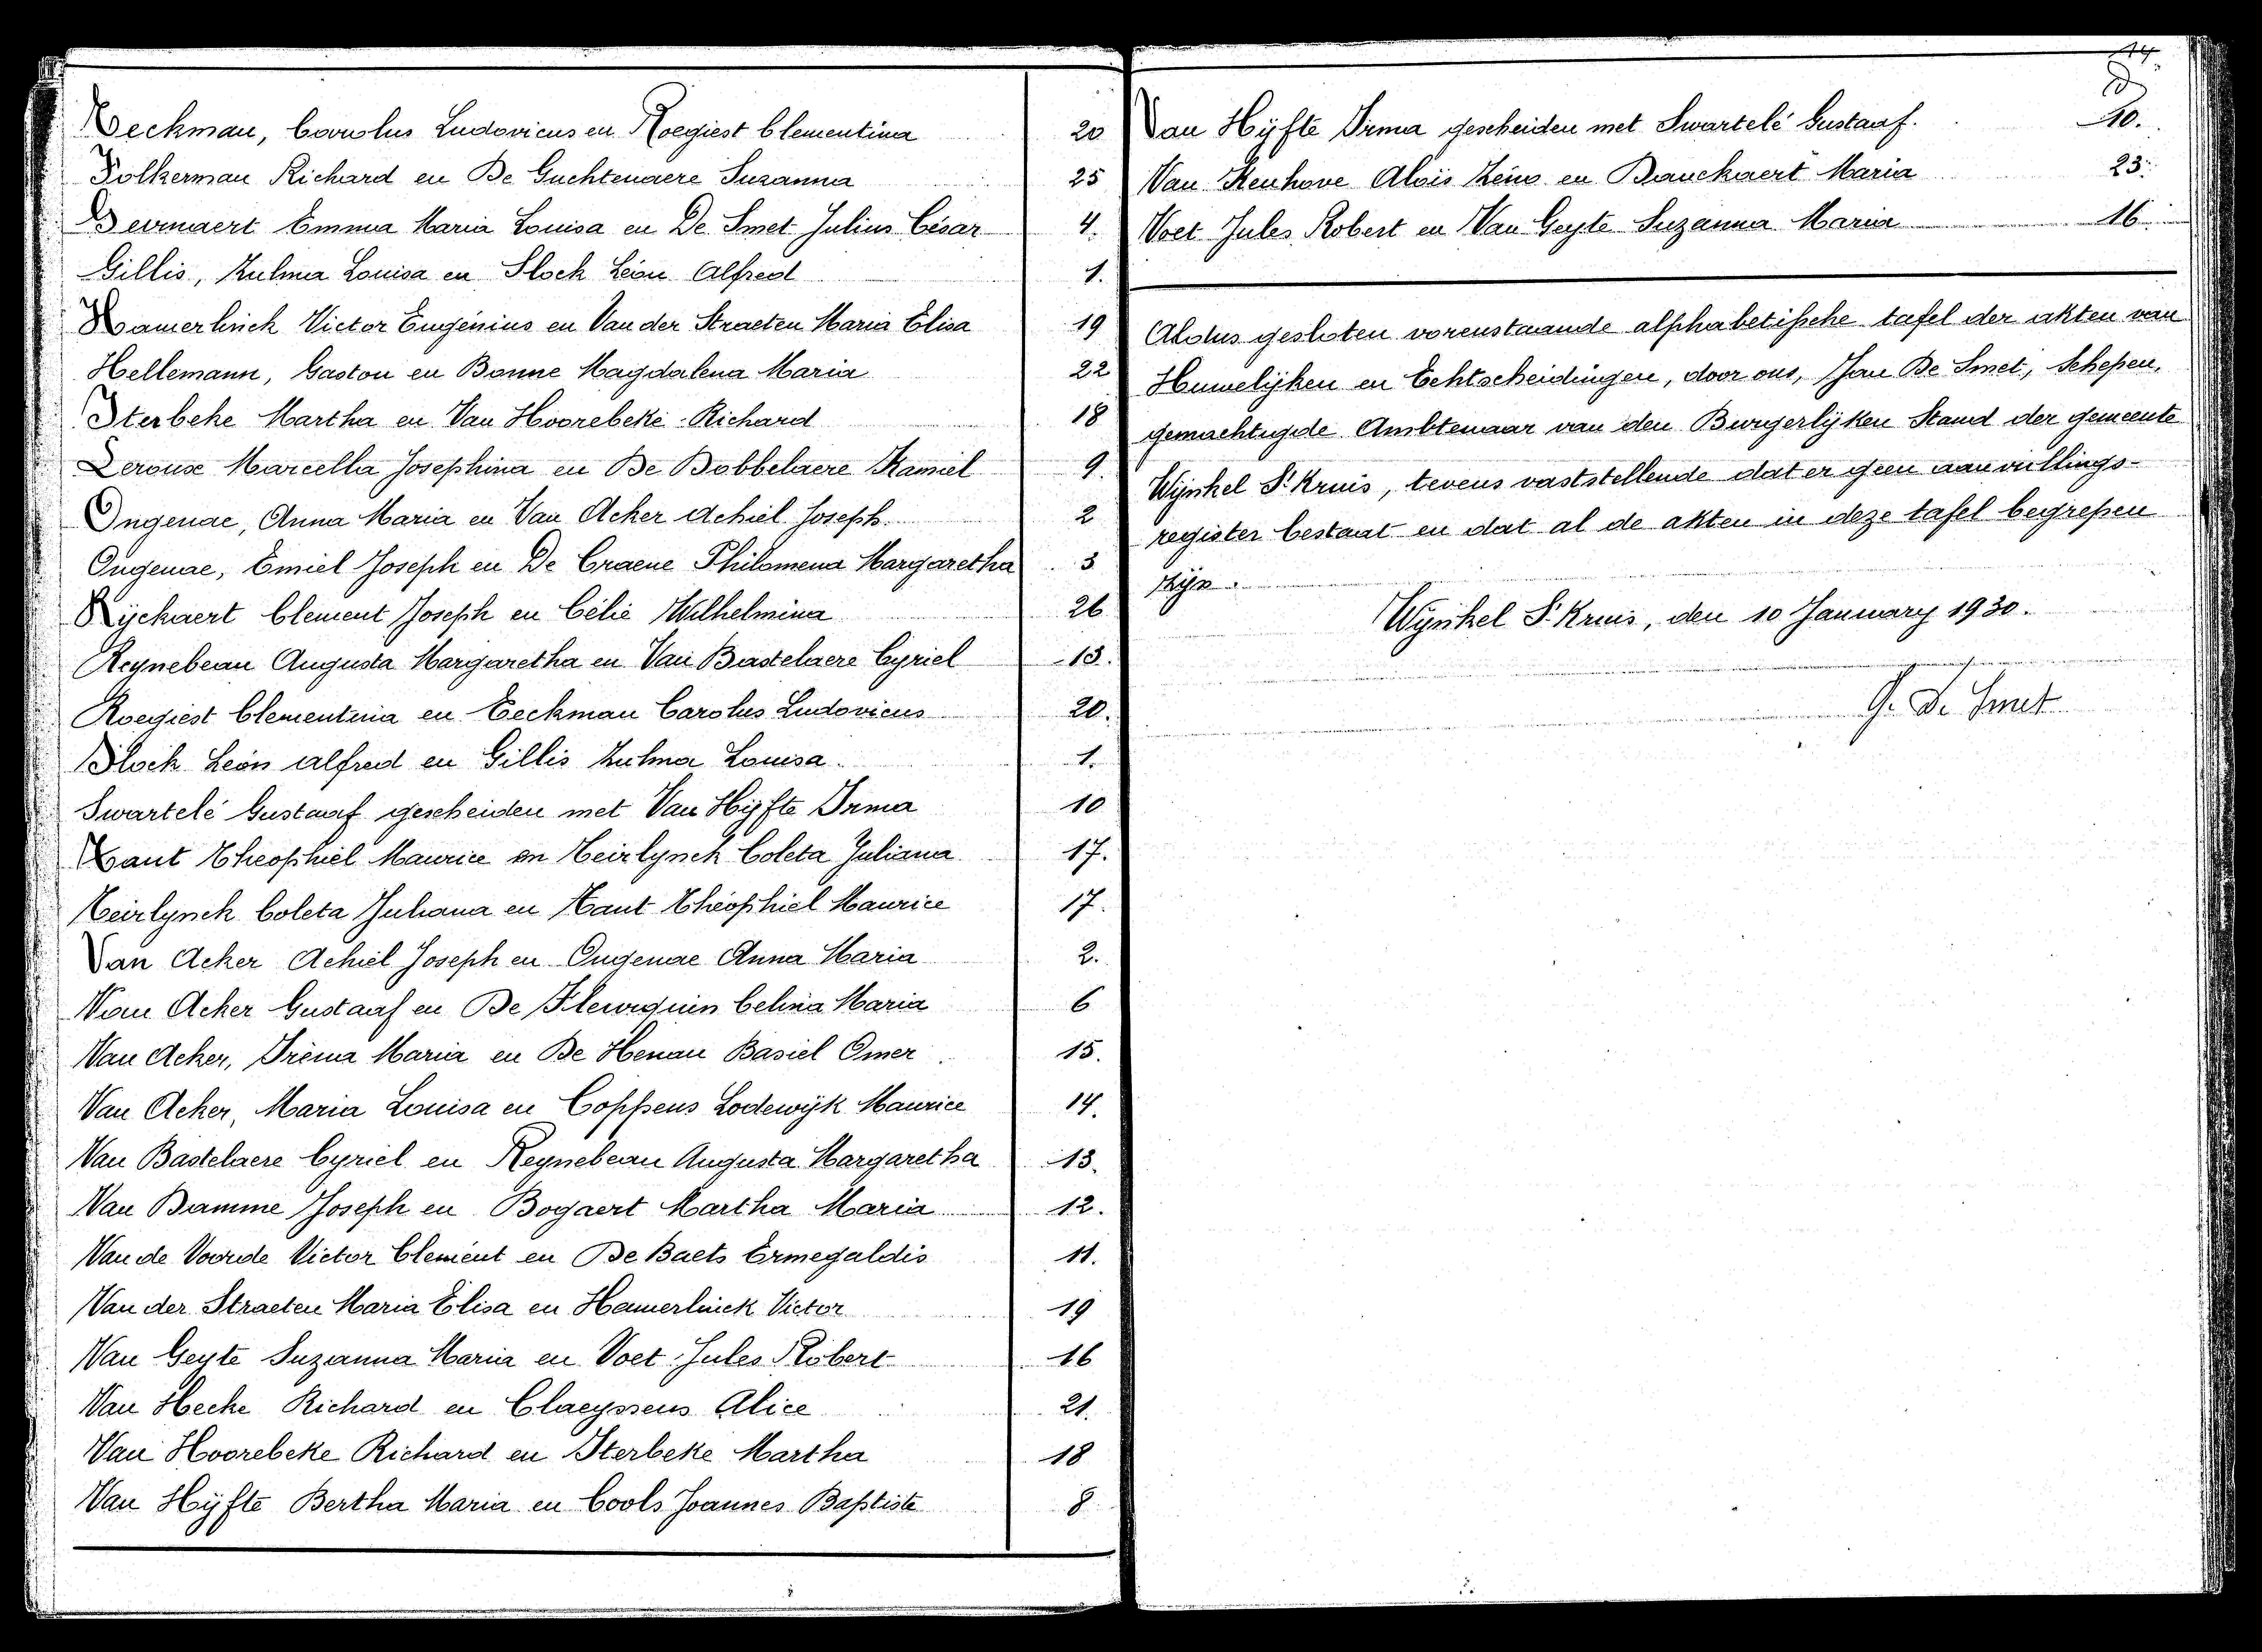 Eeckman, Carolus Ludovicus en Roegiest Clementina 20
Folkerman Richard en De Guchtenaere Suzanna 25
Gevaert Emma Maria Louisa en De Smet Julius César 4.
Gillis, Zulma Louisa en Slock Léon Alfred 1.
Hamerlinck Victor Eugénius en Van der Straeten Maria Elisa 19
Hellemann, Gaston en Bonne Magdalena Maria 22
Sterbeke Martha en Van Hoorebeke Richard 18
Leroux Marcella Josephina en De Dobbelaere Kamiel 9.
Ongenae, Anna Maria en Van Acker Achiel Joseph 2
Ongenae, Emiel Joseph en De Craene Philomena Margaretha 3
Ryckaert Clement Joseph en Célie Wilhelmina 26
Reynebeau Augusta Margaretha en Van Bastelaere Cyriel 13.
Roegiest Clementina en Eeckman Carolus Ludovicus 20.
Slock Léon Alfred en Gillis Zulma Louisa 1.
Swartelé Gustaaf gescheiden met Van Hyfte Irma 10
Taut Theophiel Maurice en Teirlynck Coleta Juliana 17.
Teirlynck Coleta Juliana en Taut Théophiel Maurice 17.
Van Acker Achiel Joseph en Ongenae Anna Maria 2.
Van Acker Gustaaf en De Fleurquin Celina Maria 6
Van Acker, Iréna Maria en De Henau Basiel Omer 15.
Van Acker, Maria Louisa en Coppens Lodewijk Maurice 14.
Van Bastelaere Cyriel en Reynebeau Augusta Margaretha 13.
Van Damme Joseph en Bogaert Martha Maria 12.
Van de Voorde Victor Clement en De Baets Ermegaldis 11.
Van der Straeten Maria Elisa en Hamerlinck Victor 19
Van Geyte Suzanna Maria en Voet Jules Robert 16
Van Hecke Richard en Claeyssens Alice 21.
Van Hoorebeke Richard en Sterbeke Martha 18
Van Hyfte Bertha Maria en Cools Joannes Baptiste 8
14
Van Hyfte Irma gescheiden met Swartelé Gustaaf. 10.
Van Kenhove Aloïs Zéno en Bauckaert Maria 23.
Voet Jules Robert en Van Geyte Suzanna Maria 16
Aldus gesloten vorenstaande alphabetische tafel der akten van
Huwelijken en Echtscheidingen, door ons, Jan De Smet, Schepen,
gemachtigde Ambtenaar van den Burgerlijken Stand der gemeente
Wijnkel St Kruis, tevens vaststellende dat er geen aanvullings-
register bestaat en dat al de akten in deze tafel begrepen
zijn.
Wynkel St Kruis, den 10 January 1930.
J. De Smet